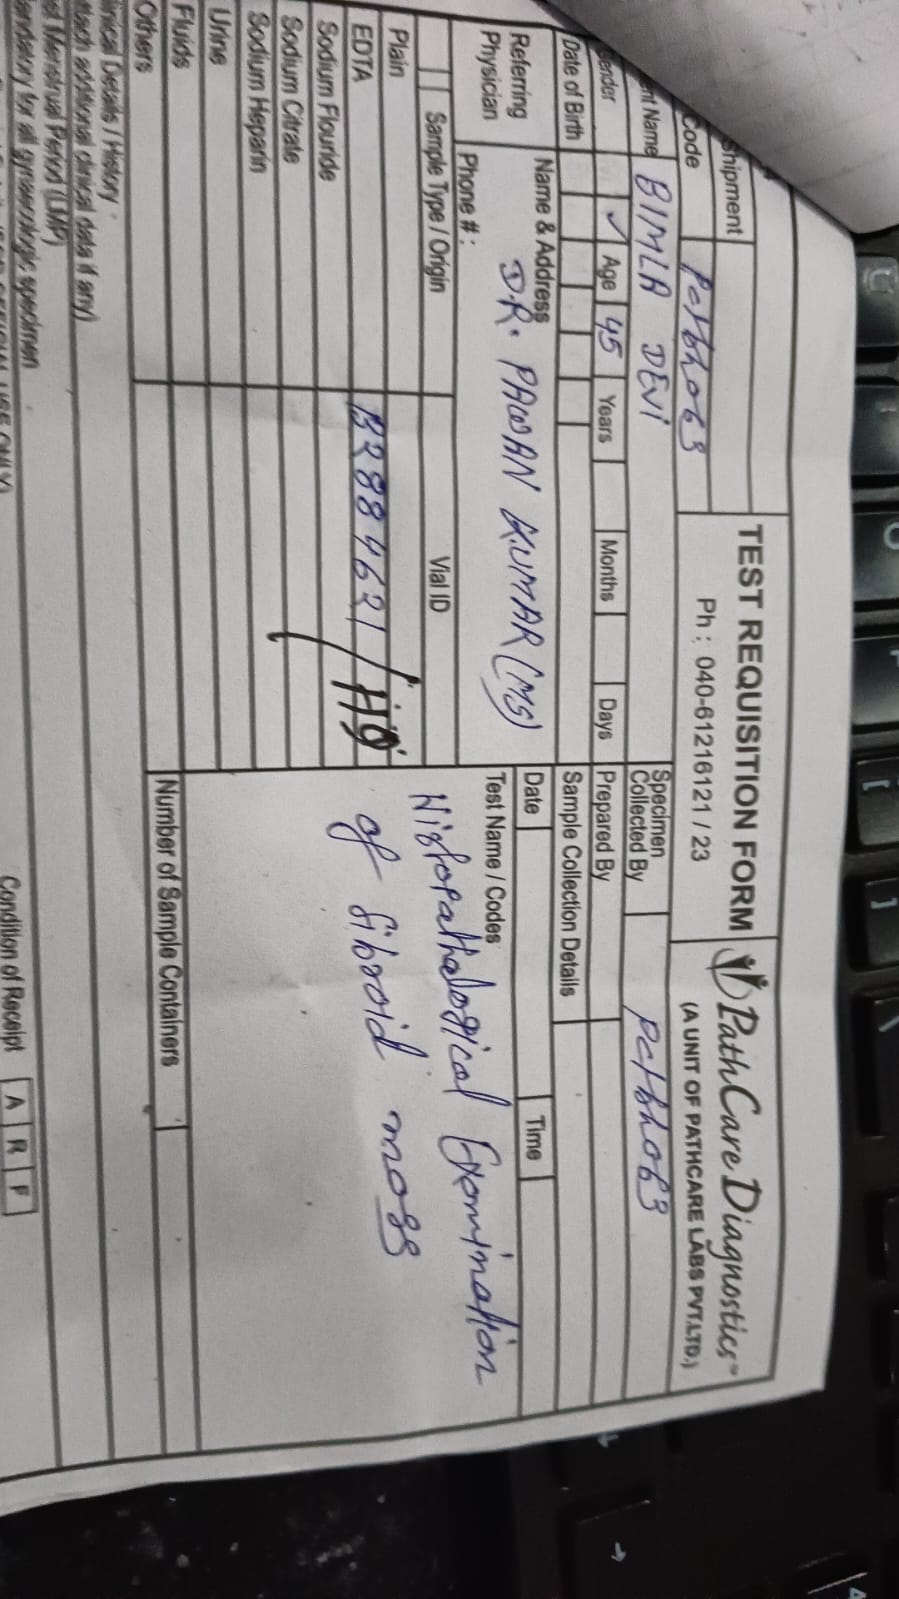 TEST REQUISITION FORM
Ph : 040-61216121 / 23
PathCare Diagnostics™
(A UNIT OF PATHCARE LABS PVT.LTD.)
Shipment
Code
nt Name BIMLA DEVI
ender ✓ Age 45 Years Months Days
Date of Birth
Specimen
Collected By
Prepared By
Sample Collection Details
Date Time
Referring
Physician
Name & Address
DR. PAWAN KUMAR (MS)
Phone # :
Sample Type / Origin Vial ID
Plain
EDTA B2884621/Hg
Sodium Flouride
Sodium Citrate
Sodium Heparin
Urine
Fluids
Others
Test Name / Codes
Histopathological Examination
of fibroid mass
Number of Sample Containers
inical Details / History
ttach additional clinical data if any)
st Menstrual Period (LMP)
andatory for all gynaecologic specimen
Condition of Receipt A R F